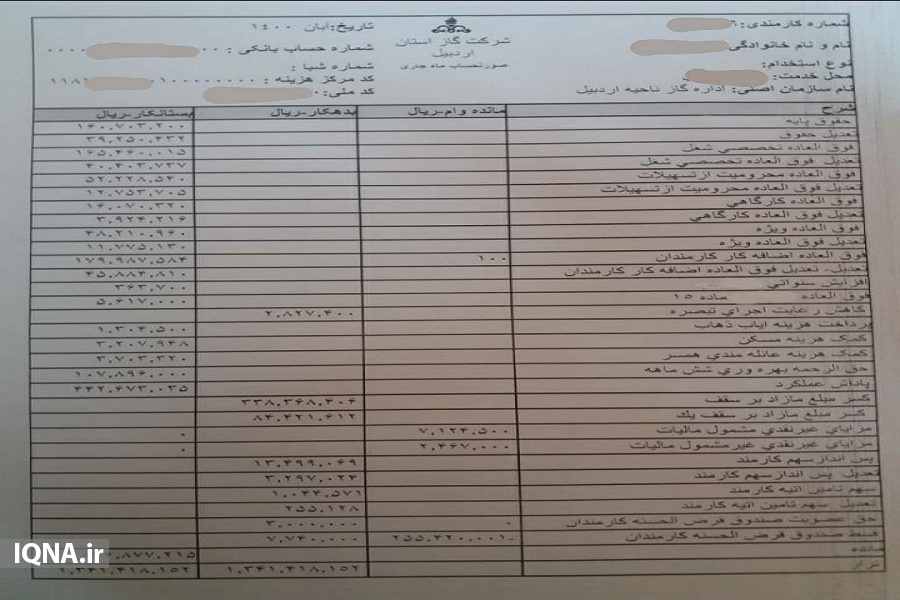 شماره کارمندی:
نام و نام خانوادگی:
نوع استخدام:
محل خدمت:
نام سازمان اصلی: اداره گاز ناحیه اردبیل
شرکت گاز استان
اردبیل
صورتحساب ماه جاری
تاریخ: آبان ۱۴۰۰
شماره حساب بانکی :
شماره شبا :
کد مرکز هزینه :
کد ملی:
شرح مانده وام-ریال بدهکار-ریال بستانکار-ریال
حقوق پایه ۱۶۰.۷۰۳.۲۰۰
تعدیل حقوق ۳۹.۲۵۰.۴۳۲
فوق العاده تخصصي شغل ۱۶۵.۴۶۰.۰۱۵
تعدیل فوق العاده تخصصي شغل ۴۰.۴۰۳.۷۳۷
فوق العاده محرومیت ازتسهیلات ۵۲.۲۲۸.۵۴۰
تعدیل فوق العاده محرومیت ازتسهیلات ۱۲.۷۵۳.۷۰۵
فوق العاده کارگاهي ۱۶.۰۷۰.۳۲۰
تعدیل فوق العاده کارگاهي ۳.۹۲۴.۲۱۶
فوق العاده ویژه ۴۸.۲۱۰.۹۶۰
تعدیل فوق العاده ویژه ۱۱.۷۷۵.۱۳۰
فوق العاده اضافه کار کارمندان ۱۰۰ ۱۷۹.۹۸۷.۵۸۴
تعدیل- تعدیل فوق العاده اضافه کار کارمندان ۴۵.۸۸۴.۸۱۰
افزایش سنواتي ۳۶۳.۷۰۰
فوق العاده ماده ۱۵ ۵.۶۱۷.۰۰۰
کاهش رعایت اجراي تبصره ۲.۸۲۷.۴۰۰
پرداخت هزینه ایاب ذهاب ۱.۳۰۴.۵۰۰
کمک هزینه مسکن ۳.۲۰۷.۹۴۸
کمک هزینه عائله مندي همسر ۳.۷۰۳.۳۲۰
حق الزحمه بهره وري شش ماهه ۱۰۷.۸۹۶.۰۰۰
پاداش عملکرد ۴۴۲.۶۷۳.۰۳۵
کسر مبلغ مازاد بر سقف ۳۳۸.۳۶۸.۴۰۶
کسر مبلغ مازاد بر سقف یك ۸۴.۴۲۱.۶۱۲
مزایاي غیرنقدي مشمول مالیات ۷.۱۲۴.۵۰۰ ۰
مزایاي غیرنقدي غیرمشمول مالیات ۲.۴۶۷.۰۰۰ ۰
پس اندازسهم کارمند ۱۳.۴۹۹.۰۶۹
تعدیل پس اندازسهم کارمند ۳.۲۹۷.۰۲۴
سهم تامین اتیه کارمند ۱.۰۴۴.۵۷۱
تعدیل سهم تامین اتیه کارمند ۲۵۵.۱۲۸
حق عضویت صندوق قرض الحسنه کارمندان ۰ ۳.۰۰۰.۰۰۰
قسط صندوق قرض الحسنه کارمندان ۲۵۵.۴۲۰.۰۰۱- ۷.۷۴۰.۰۰۰
مانده
تراز ۱.۳۴۱.۴۱۸.۱۵۲ ۱.۳۴۱.۴۱۸.۱۵۲
IQNA.ir